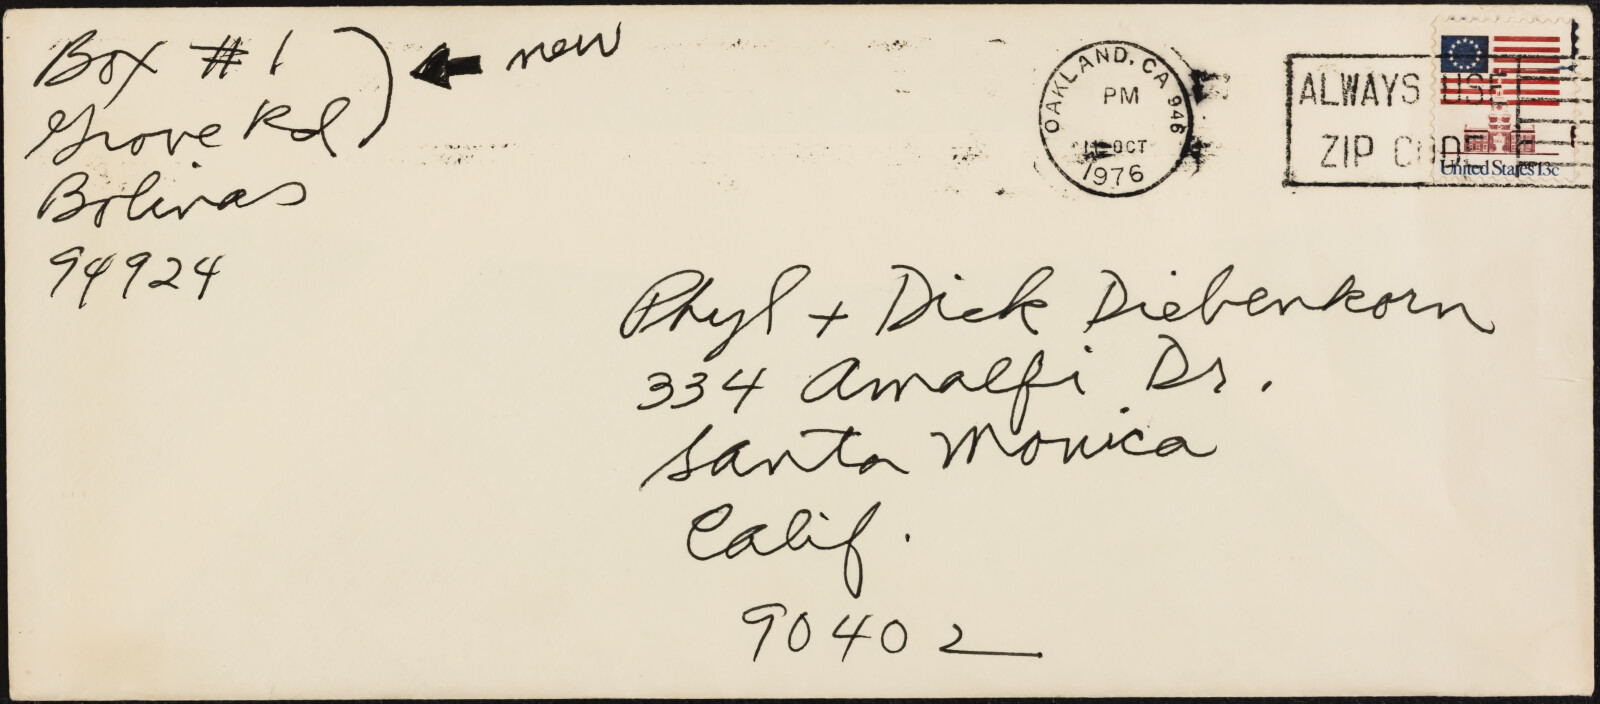 Box # 1
Grove Rd
new
Bolinas
94924
OAKLAND, CA 946
PM
11 OCT
1976
ALWAYS USE
ZIP CODE
United States 13c
Phyl + Dick Diebenkorn
334 Amalfi Dr.
Santa Monica
Calif.
90402